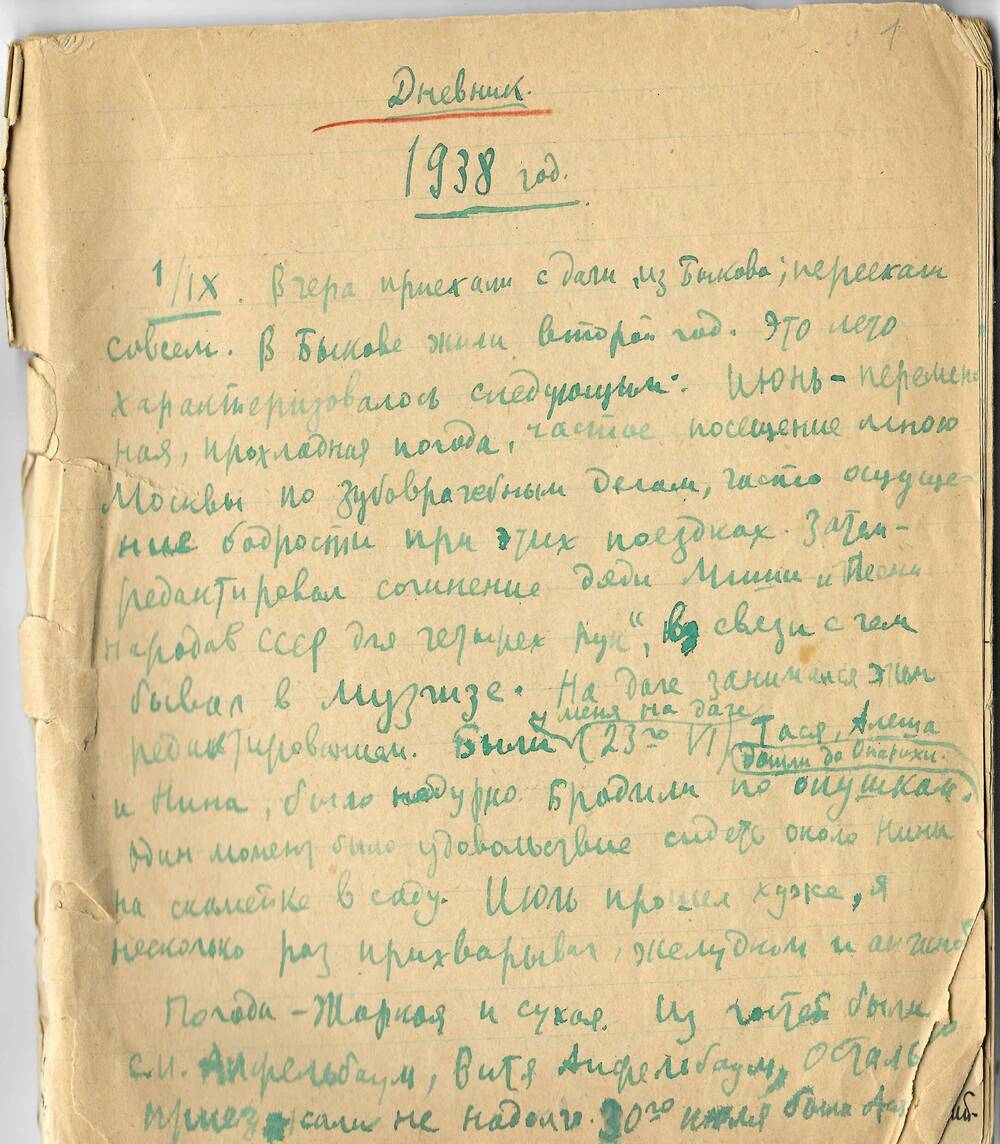 1
Дневник.
1938 год.
1/IX. Вчера приехали с дачи из Быкова; переехали
совсем. В Быкове жили второй год. Это лето
характеризовалось следующим: Июнь - перемен-
ная, прохладная погода, частое посещение мною
Москвы по зубоврачебным делам, часто ощуще-
ние бодрости при этих поездках. Затем -
редактировал сочинение дяди Миши „Песни
народов СССР для четырех рук“, в связи с чем
бывал в Музгизе. На даче занимался этим
у меня на даче
редактированием. Были (23го VI) Тася, Алеша
Дошли до Опарихи.
и Нина, было недурно. Бродили по опушкам.
Один момент было удовольствие сидеть около Нины
на скамейке в саду. Июль прошел хуже, я
несколько раз прихварывал, желудком и ангиной
Погода - Жаркая и сухая. Из гостей были
С.И. Апфельбаум, Витя Апфельбаум, Остальные
приезжали не надолго. 30го июля была